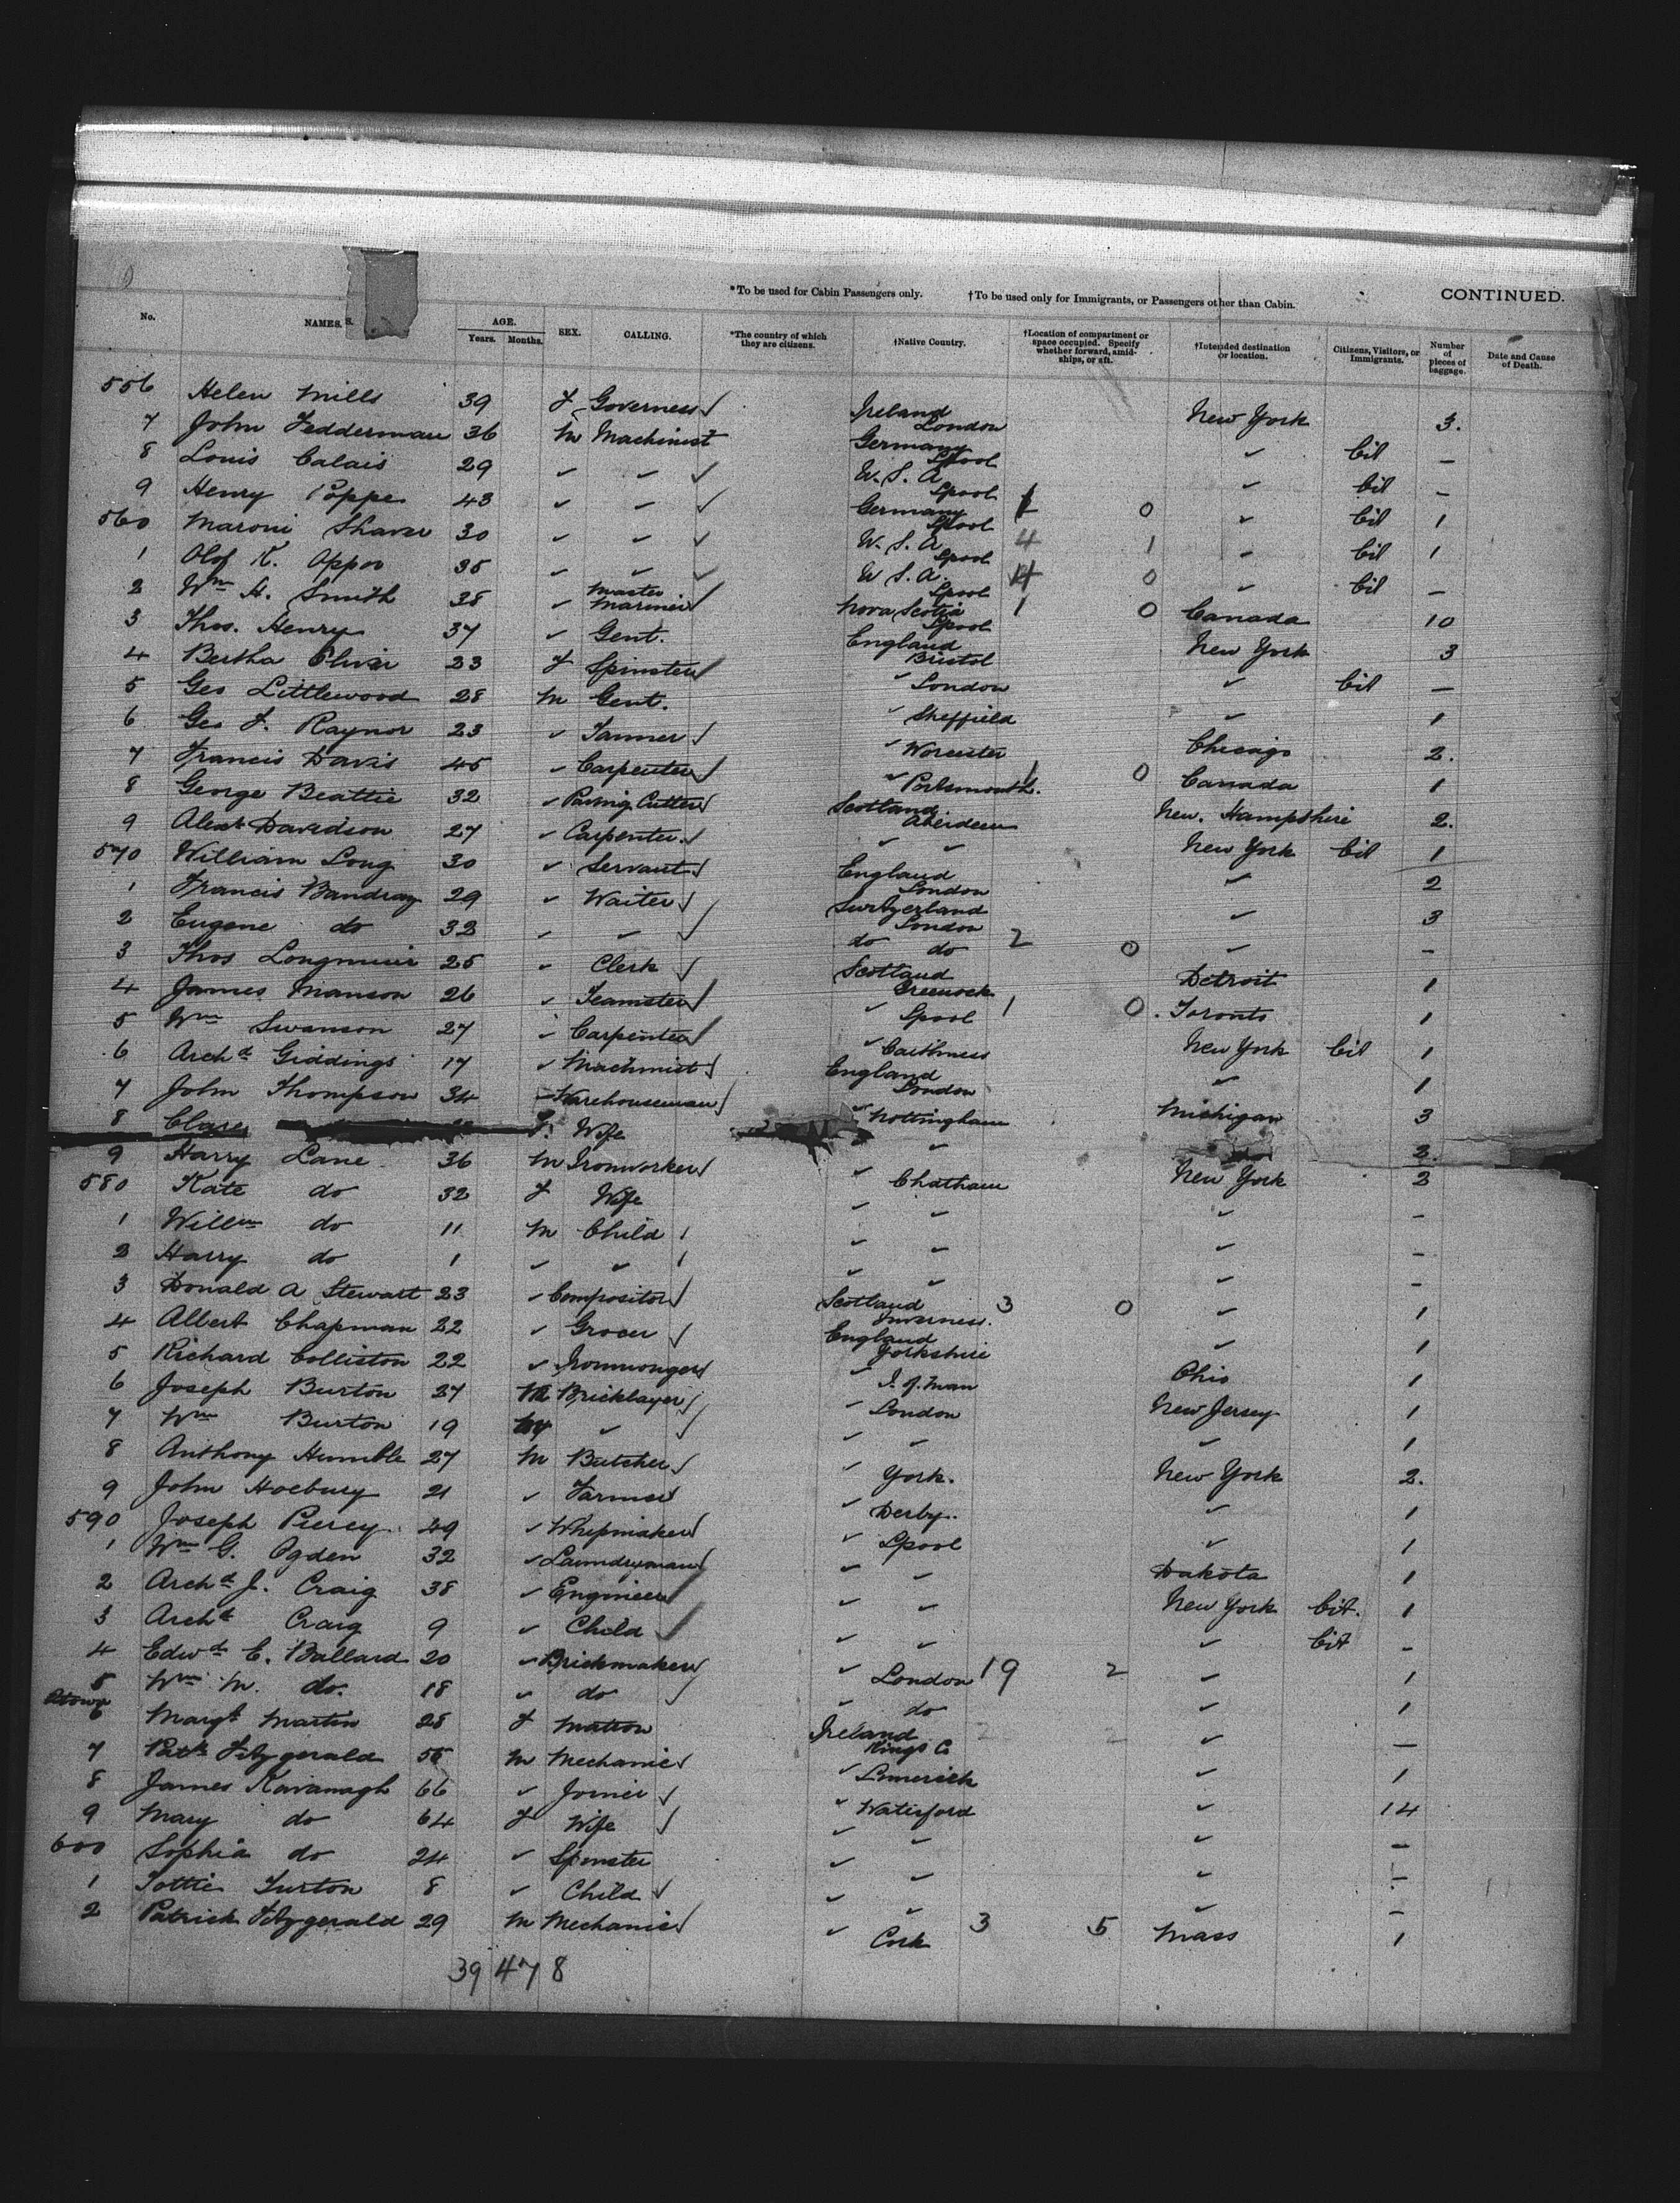 *To be used for Cabin Passengers only. †To be used only for Immigrants, or Passengers other than Cabin. CONTINUED.
No. NAMES. S. AGE. Years. Months. SEX. CALLING. *The country of which they are citizens. †Native Country. †Location of compartment or space occupied. Specify whether forward, amidships, or aft. †Intended destination or location. Citizens, Visitors, or Immigrants. Number of pieces of baggage. Date and Cause of Death.
556 Helen Mills 39 F Governess Ireland London New York 3.
7 John Fedderman 36 M Machinist Germany Lpool ✓ Cit —
8 Louis Calais 29 ✓ ✓ U.S.A Lpool ✓ Cit —
9 Henry Poppe 43 ✓ ✓ Germany Lpool 1 0 ✓ Cit 1
560 Maroni Shaver 30 ✓ ✓ U.S.A Lpool 4 1 ✓ Cit 1
1 Olof K. Appoo 35 ✓ ✓ U.S.A. Lpool 4 0 ✓ Cit —
2 Wm H. Smith 38 ✓ Master Mariner Nova Scotia Lpool 1 0 Canada 10
3 Thos. Henry 37 ✓ Gent. England Bristol New York 3
4 Bertha Oliver 23 F Spinster ✓ London ✓ Cit —
5 Geo Littlewood 28 M Gent. ✓ Sheffield ✓ 1
6 Geo F. Raynor 23 ✓ Tanner ✓ Worcester Chicago 2.
7 Francis Davis 45 ✓ Carpenter ✓ Portsmouth. 1 0 Canada 1
8 George Beattie 32 ✓ Paving Cutter Scotland Aberdeen New. Hampshire 2.
9 Alexr Davidson 27 ✓ Carpenter ✓ ✓ New York Cit 1
570 William Long 30 ✓ Servant England London ✓ 2
1 Francis Bandray 29 ✓ Waiter Switzerland London ✓ 3
2 Eugene do 32 ✓ ✓ do do 2 0 ✓ —
3 Thos Longmuir 25 ✓ Clerk Scotland Greenock Detroit 1
4 James Manson 26 ✓ Teamster ✓ Lpool 1 0 Toronto 1
5 Wm Swanson 27 ✓ Carpenter ✓ Caithness New York Cit 1
6 Archd Giddings 17 ✓ Machinist England London ✓ 1
7 John Thompson 34 ✓ Warehouseman ✓ Nottingham Michigan 3
8 Clare F. Wife ✓ 2.
9 Harry Lane 36 M Ironworker ✓ Chatham New York 2
580 Kate do 32 F Wife ✓ ✓ ✓ —
1 Willm do 11 M Child ✓ ✓ ✓ —
2 Harry do 1 ✓ ✓ ✓ ✓ ✓ —
3 Donald A Stewart 23 ✓ Compositor Scotland Inverness. 3 0 ✓ 1
4 Albert Chapman 22 ✓ Grocer England Yorkshire ✓ 1
5 Richard Colliston 22 ✓ Ironmonger ✓ I. of. Man Ohio 1
6 Joseph Burton 27 M Bricklayer ✓ London New Jersey 1
7 Wm Burton 19 M ✓ ✓ ✓ ✓ 1
8 Anthony Humble 27 M Butcher ✓ York. New York 2.
9 John Hoebury 21 ✓ Farmer ✓ Derby. ✓ 1
590 Joseph Piercy 49 ✓ Whipmaker ✓ Lpool ✓ 1
1 Wm G. Ogden 32 ✓ Laundryman ✓ ✓ Dakota 1
2 Archd J. Craig 38 ✓ Engineer ✓ ✓ New York Cit. 1
3 Archd Craig 9 ✓ Child ✓ ✓ ✓ Cit —
4 Edwd E. Ballard 20 ✓ Brickmaker ✓ London 19 2 ✓ 1
5 Wm M. do. 18 ✓ do ✓ do ✓ 1
6 Margt Martin 28 F Matron Ireland Kings Co 2 2 ✓ —
7 Patk Fitzgerald 55 M Mechanic ✓ Limerick ✓ 1
8 James Kavanagh 66 ✓ Joiner ✓ Waterford ✓ 14
9 Mary do 64 F Wife ✓ ✓ ✓ —
600 Sophia do 24 ✓ Spinster ✓ ✓ ✓ —
1 Tottie Turton 8 ✓ Child ✓ ✓ ✓ —
2 Patrick Fitzgerald 29 M Mechanic ✓ Cork 3 5 Mass 1
39 47 8